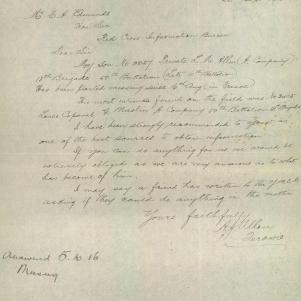 Mr E. A. Edwards
Hon Sec
Red Cross Information Bureau
Dear Sir
My Son No 3227 Private L. R. Allen A Company
13th Brigade 50th Battalion (Late Battalion)
Has been posted missing since Augt in France
His most intimate friend on the field was No 3015
Lance Corporal Company Battalion Brigade
I have been strongly recommended to you as
one of the best sources to obtain information
If you can do anything for us we would be
entirely obliged as we are very anxious as to what
has become of him.
I may say a friend has written to the YMCA
asking if they could do anything in the matter
Yours faithfully
Allen
Terowie
Answered 5.10.16
Missing